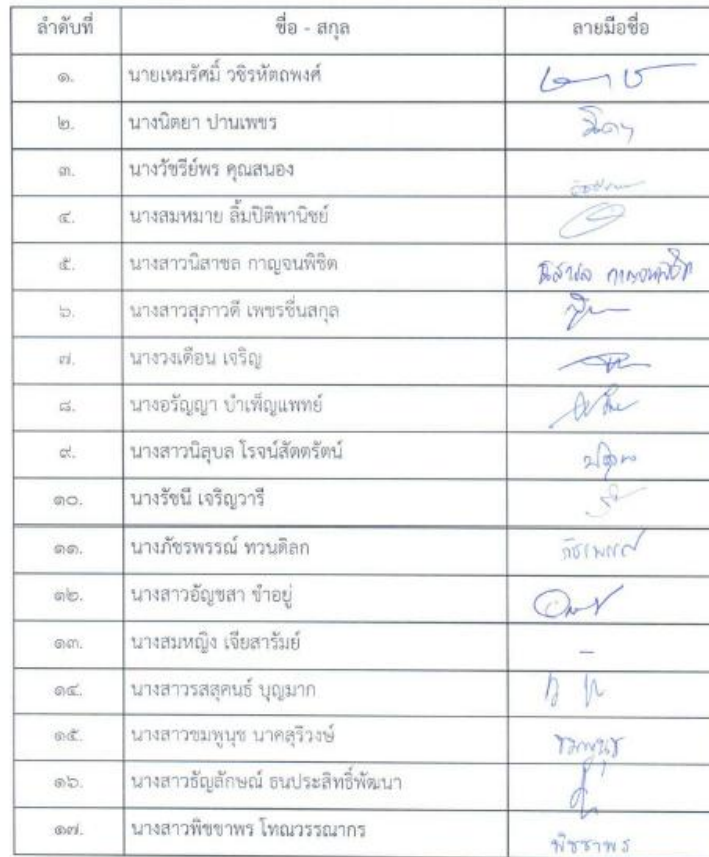 ลำดับที่ ชื่อ - สกุล ลายมือชื่อ
๑. นายเหมรัศมิ์ วชิรหัตถพงศ์
๒. นางนิตยา ปานเพชร
๓. นางวัชรีย์พร คุณสนอง
๔. นางสมหมาย ลิ้มปิติพานิชย์
๕. นางสาวนิสาชล กาญจนพิชิต นิสาชล กาญจนพิชิต
๖. นางสาวสุภาวดี เพชรชื่นสกุล
๗. นางวงเดือน เจริญ
๘. นางอรัญญา บำเพ็ญแพทย์
๙. นางสาวนิลุบล โรจน์สัตตรัตน์
๑๐. นางรัชนี เจริญวารี
๑๑. นางภัชรพรรณ์ ทวนดิลก ภัชรพรรณ์
๑๒. นางสาวอัญชสา ขำอยู่
๑๓. นางสมหญิง เจียสารัมย์ -
๑๔. นางสาวรสสุคนธ์ บุญมาก
๑๕. นางสาวชมพูนุช นาคสุริวงษ์ ชมพูนุช
๑๖. นางสาวธัญลักษณ์ ธนประสิทธิ์พัฒนา
๑๗. นางสาวพิชชาพร โทณวรรณากร พิชชาพร